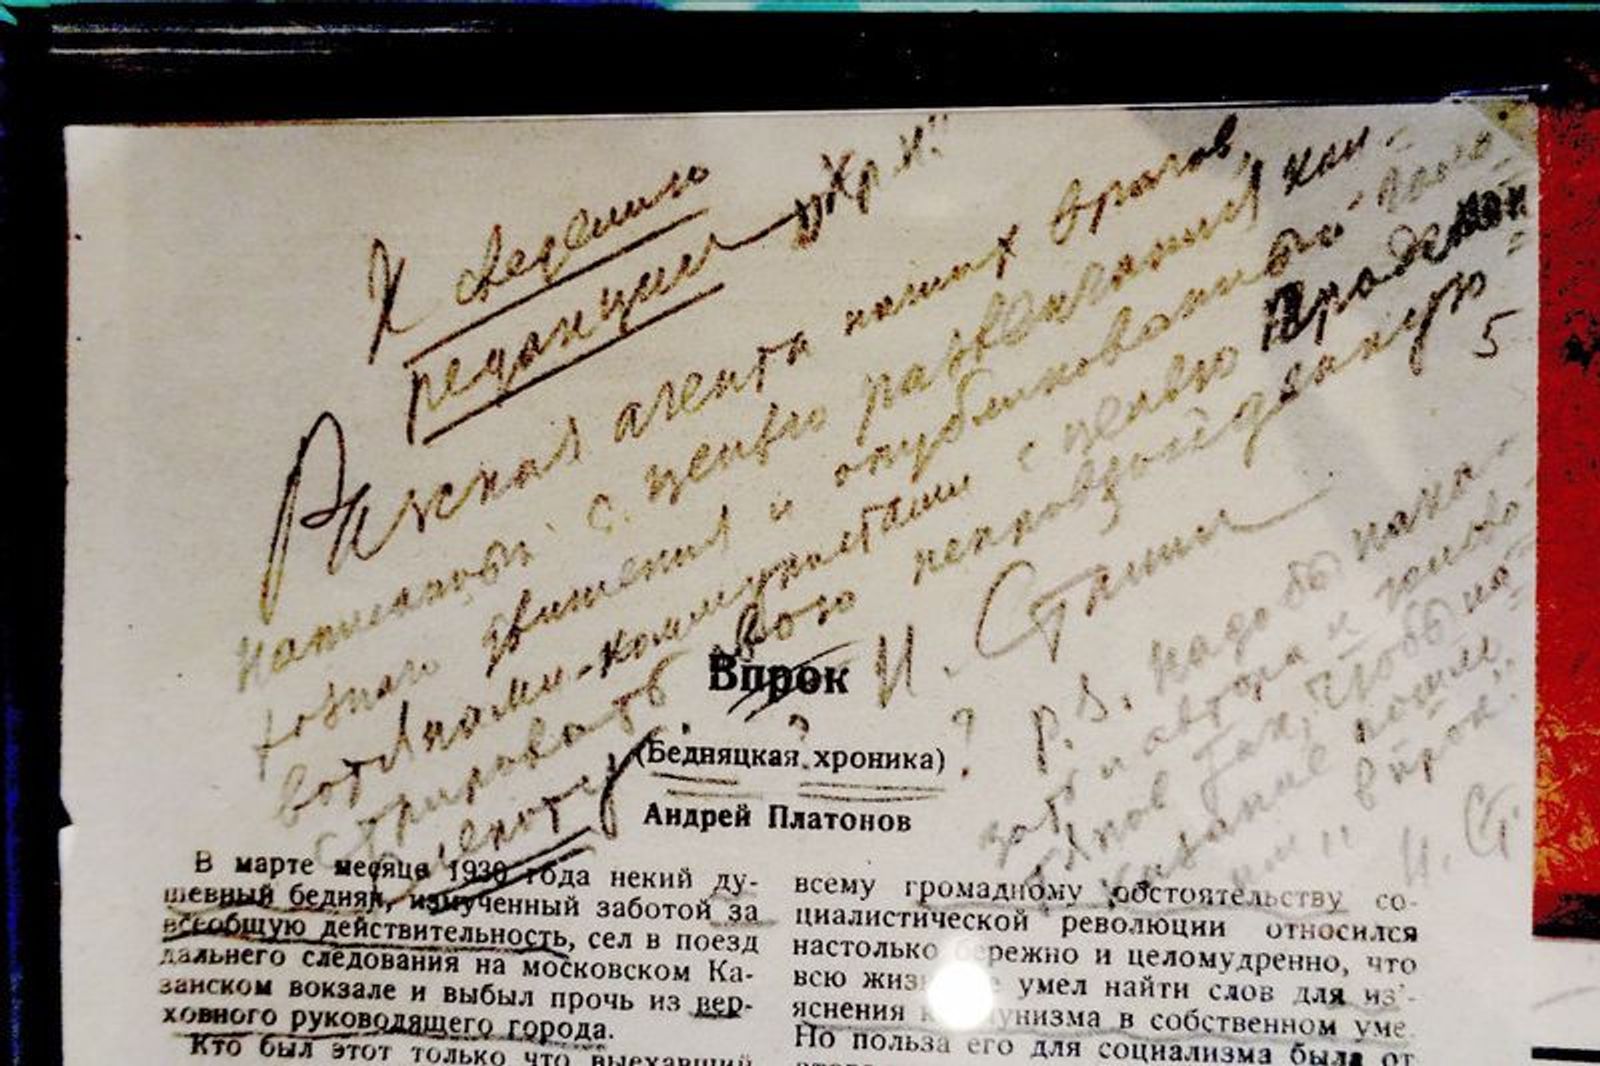 К сведению
редакции „Кр. н."
Рассказ агента наших врагов,
написанный с целью развенчания кол-
хозного движения и опубликованный голо-
вотяпами-коммунистами с целью продемон-
стрировать свою непревзойденную
слепоту.
И. Сталин
5
P.S. Надо бы нака-
зать и автора и головотя-
пов так, чтобы на-
казание пошло
им „впрок".
И. Ст.
Впрок
?
(Бедняцкая хроника) ?
Андрей Платонов
В марте месяце 1930 года некий ду-
шевный бедняк, измученный заботой за
всеобщую действительность, сел в поезд
дальнего следования на московском Ка-
занском вокзале и выбыл прочь из вер-
ховного руководящего города.
Кто был этот только что выехавший
всему громадному обстоятельству со-
циалистической революции относился
настолько бережно и целомудренно, что
всю умел найти слов для из'-
яснения в собственном уме.
Но польза его для социализма была от